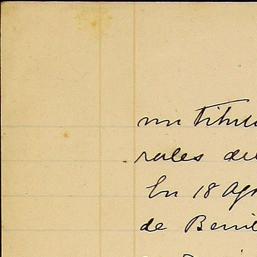 un titulo
rales de
En 18 Ago
de Beni